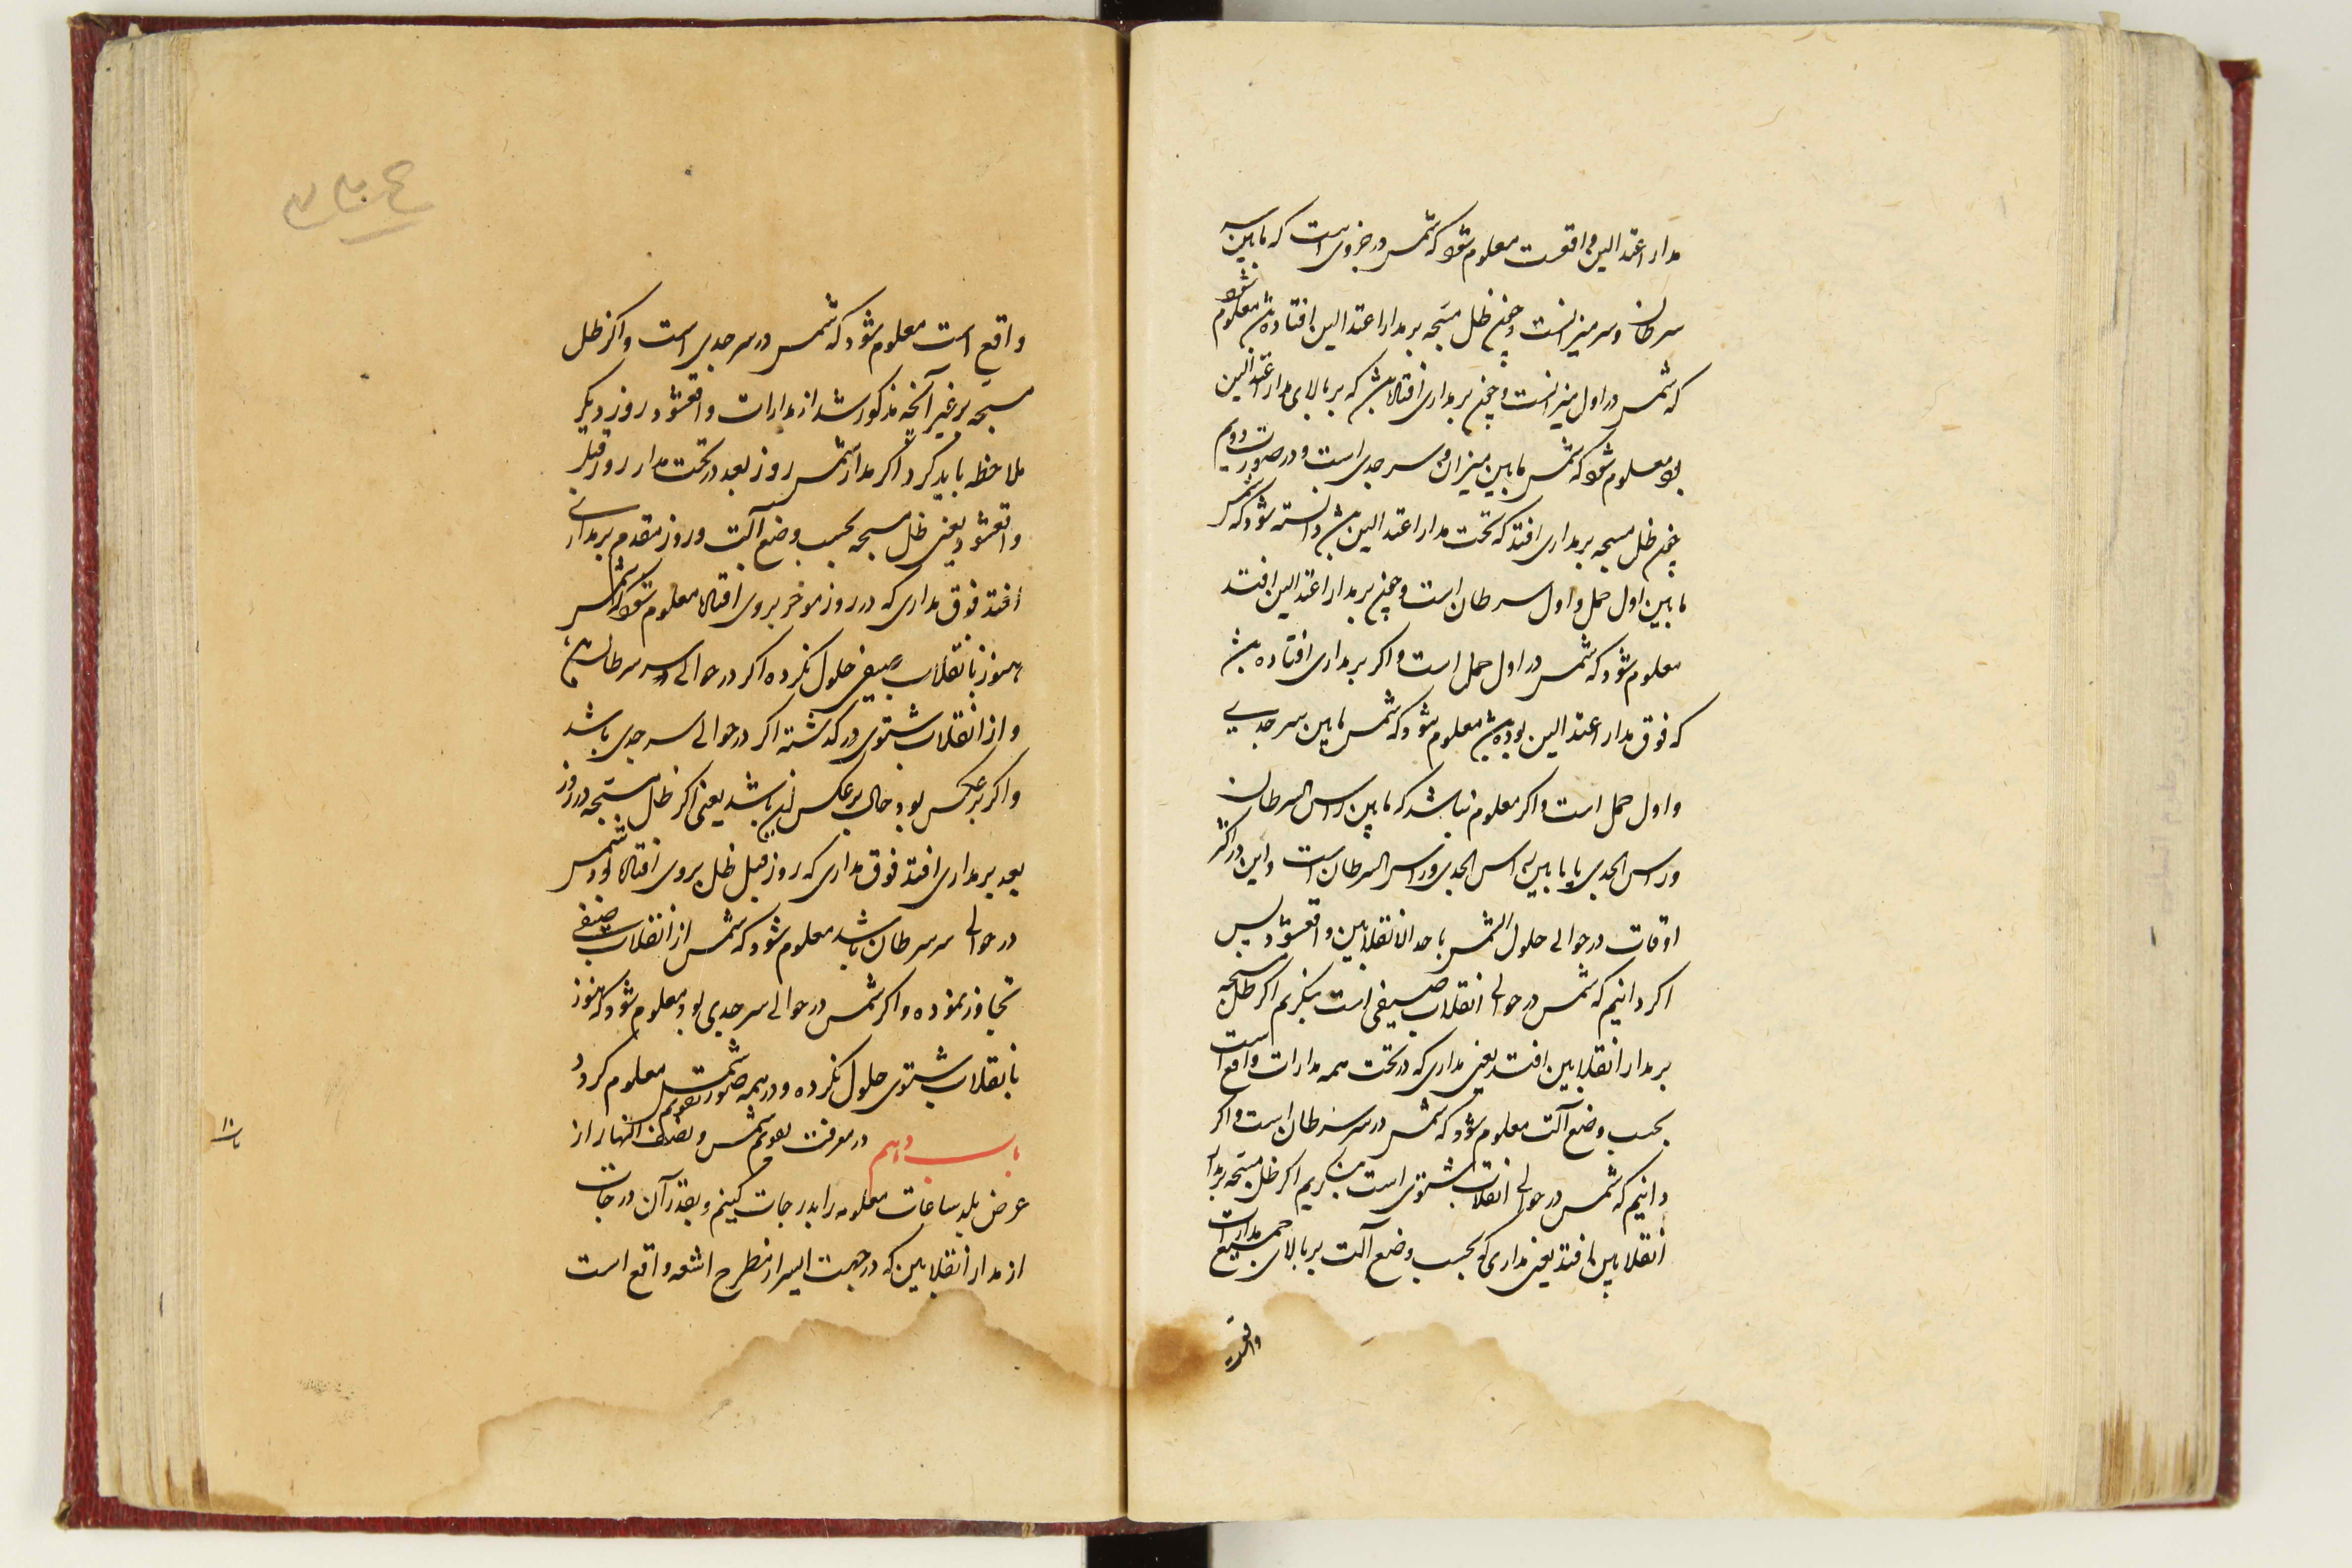 مدار اعتدالین واقعست معلوم شود که شمس در جزوی است که مابین سر
سرطان و سر میزانست و چون ظل مسبحه بر مدار اعتدالین افتاده باشد معلوم شود
که شمس در اول میزانست و چون بر مداری افتاده باشد که بر بالای مدار اعتدالین
بود معلوم شود که شمس مابین میزان و سر جدی است و در صورت دویم
چون ظل مسبحه بر مداری افتد که تحت مدار اعتدالین باشد دانسته شود که شمس
مابین اول حمل و اول سرطان است و چون بر مدار اعتدالین افتد
معلوم شود که شمس در اول حمل است و اکر بر مداری افتاده باشد
که فوق مدار اعتدالین بوده باشد معلوم شود که شمس مابین سر جدی
و اول حمل است و اکر معلوم نباشد که مابین راس السرطان
و راس الجدی یا مابین راس الجدی و راس السرطان است و این در اکثر
اوقات در حوالی حلول الشمس باحد الانقلابین واقع شود پس
اکر دانیم که شمس در حوالی انقلاب صیفی است بنکریم اکر ظل مسبحه
بر مدار انقلابین افتد یعنی مداری که در تحت همه مدارات واقع است
بحسب وضع آلت معلوم شود که شمس در سر سرطان است و اکر
دانیم که شمس در حوالی انقلاب شتوی است بنکریم اکر ظل مسبحه بر مدار
انقلابین افتد یعنی مداری که بحسب وضع آلت بر بالای جمیع مدارات
واقعست
واقع است معلوم شود که شمس در سر جدی است و اکر ظل
مسبحه بر غیر آنچه مذکور شد از مدارات واقع شود روز دیکر
ملاحظه باید کرد اکر مدار شمس روز بعد در تحت مدار روز قبل
واقع شود یعنی ظل مسبحه بحسب وضع آلت در روز مقدم بر مداری
افتد فوق مداری که در روز موخر بر وی افتاد معلوم شود که شمس
هنوز بانقلاب صیفی حلول نکرده اکر در حوالی سر سرطان باشد
و از انقلاب شتوی در کذشته اکر در حوالی سر جدی باشد
و اکر بر عکس بود حال بر عکس این باشد یعنی اکر ظل مسبحه در روز
بعد بر مداری افتد فوق مداری که روز قبل ظل بر وی افتاد بود شمس
در حوالی سر سرطان باشد معلوم شود که شمس از انقلاب صیفی
تجاوز نموده و اکر شمس در حوالی سر جدی بود معلوم شود که هنوز
بانقلاب شتوی حلول نکرده و در همه صور تقویم شمس معلوم کردد
باب دهم در معرفت تقویم شمس و نصف النهار از
عرض بلد ساعات معلومه را بدرجات کنیم و بقدر آن درجات
از مدار انقلابین که در جهت ایسر از مطرح اشعه واقع است
باب ۱۰